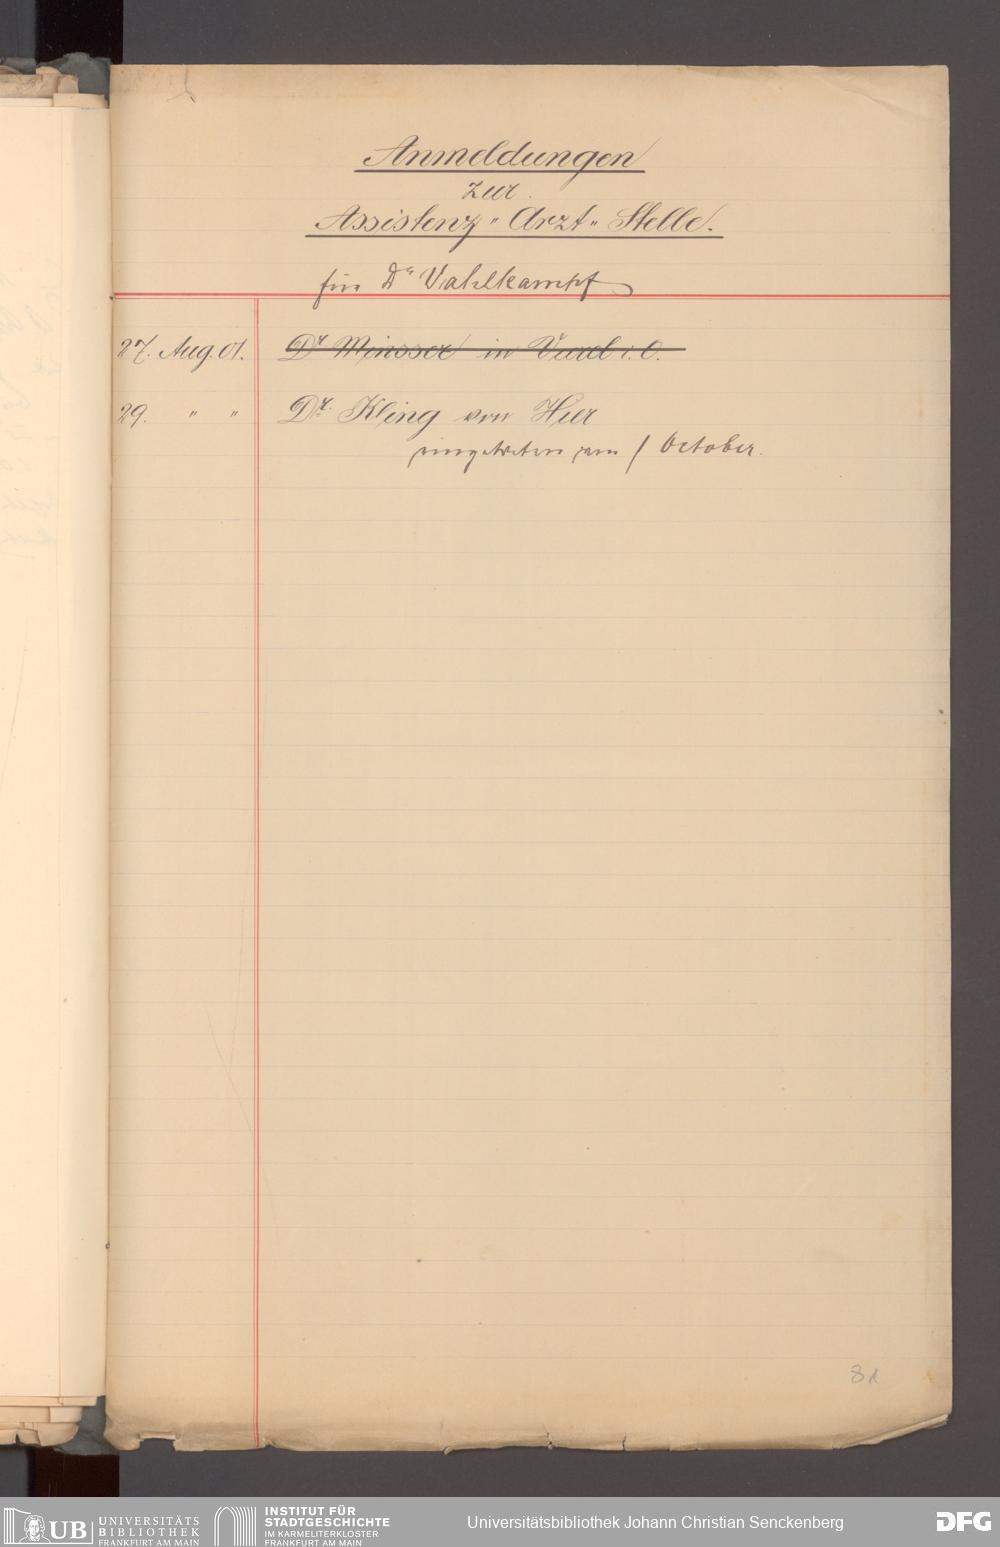 Anmeldungen
zur
Assistenz-Arzt-Stelle.
für Dr Vahlkampf
27. Aug. 01. Dr Minssen in Varel i. O.
29. " " Dr. Kling von Hier
eingetreten am 1 October.
81
UB UNIVERSITÄTS
BIBLIOTHEK
FRANKFURT AM MAIN
INSTITUT FÜR
STADTGESCHICHTE
IM KARMELITERKLOSTER
FRANKFURT AM MAIN
Universitätsbibliothek Johann Christian Senckenberg
DFG